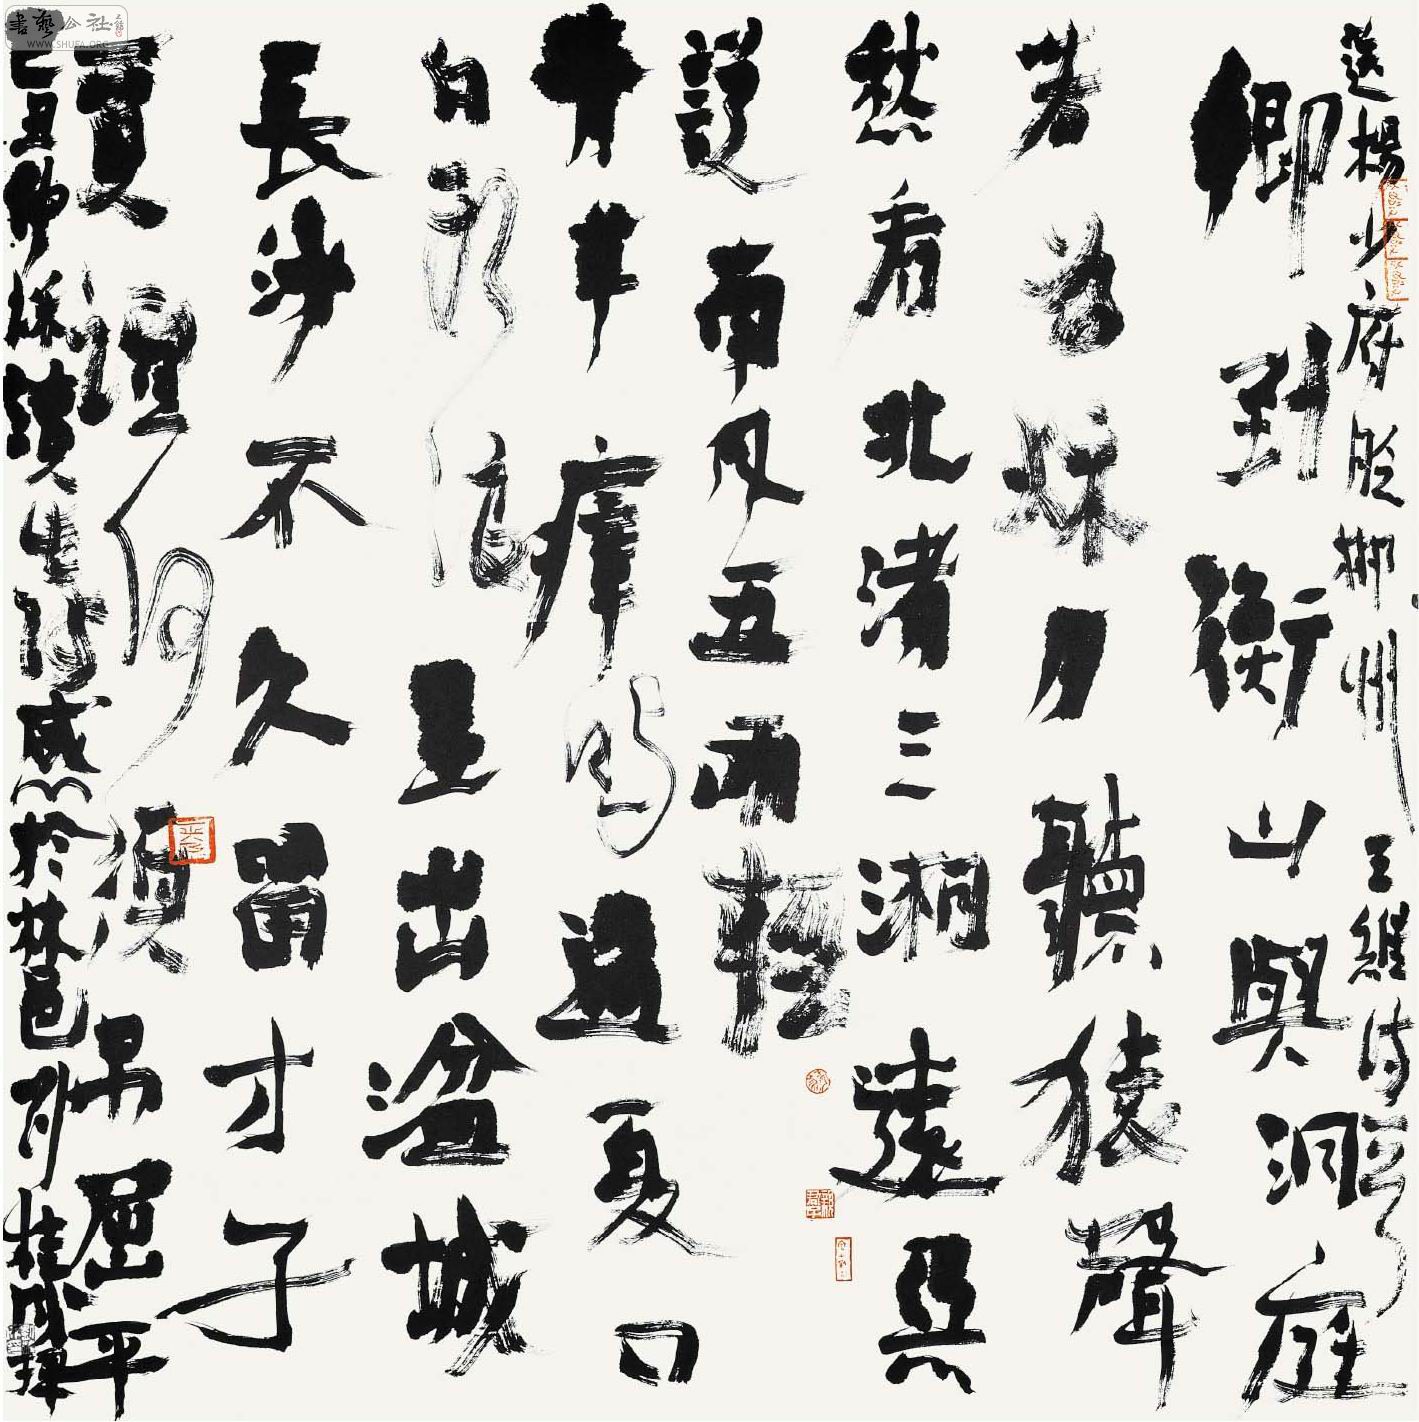 書藝公社
WWW.SHUFA.ORG
送楊少府貶郴州 王維詩
卿到衡山與洞庭
若為秋月聽猿聲
愁看北渚三湘遠惡
說南風五兩輕
青草瘴時過夏口
白頭浪里出湓城
長沙不久留才子
賈誼何須吊屈平
己丑仲秋讀生 感於林邑 桂成揮